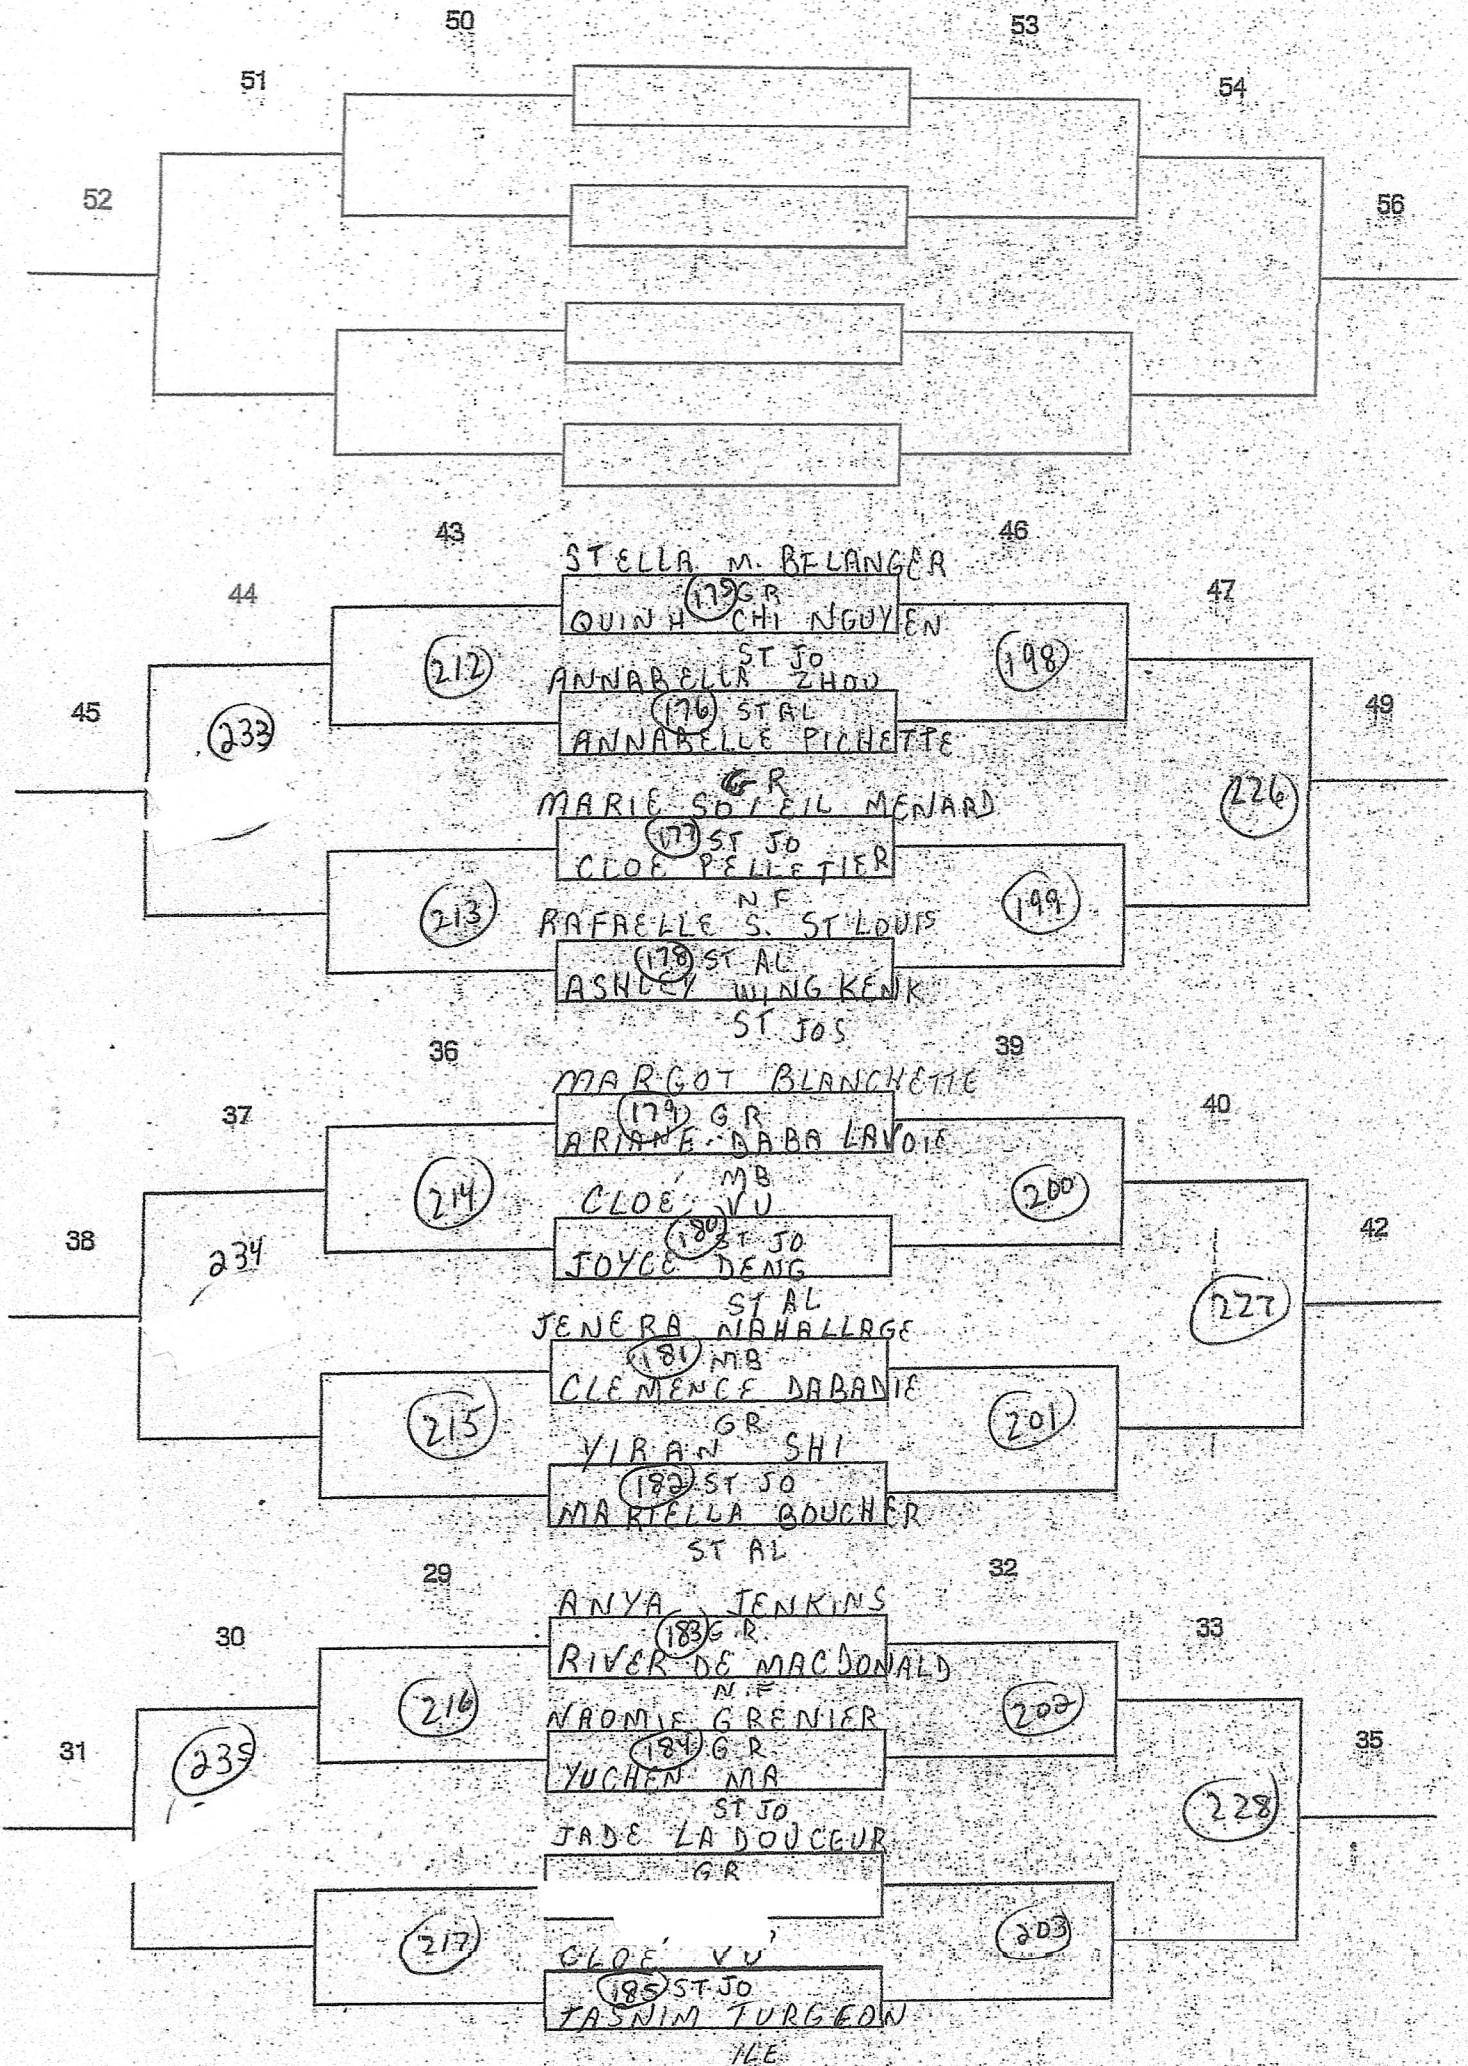 50
53
51
54
52
56
43
46
STELLA M. BELANGER
44
47
175 GR
QUINH CHI NGUYEN
212
ST JO
198
ANNABELLA ZHOU
45
49
233
176 ST AL
ANNABELLE PICHETTE
GR
226
MARIE SOLEIL MENARD
177 ST JO
CLOE PELLETIER
NF
213
199
RAFAELLE S. ST LOUIS
178 ST AL
ASHLEY WING KENK
ST JOS
36
39
MARGOT BLANCHETTE
37
40
179 GR
ARIANE DABA LAVOIE
MB
214
200
CLOÉ VU
38
42
234
180 ST JO
JOYCE DENG
ST AL
227
JENERA NAHALLAGE
181 MB
CLEMENCE DABADIE
GR
215
201
YIRAN SHI
182 ST JO
MARIELLA BOUCHER
ST AL
29
32
ANYA JENKINS
30
33
183 G.R.
RIVER DE MACDONALD
N.F
216
202
NAOMIE GRENIER
31
35
235
184 GR
YUCHEN MA
ST JO
228
JADE LADOUCEUR
GR
217
203
CLOÉ VU
185 ST JO
JASNIM TURGEON
ILE